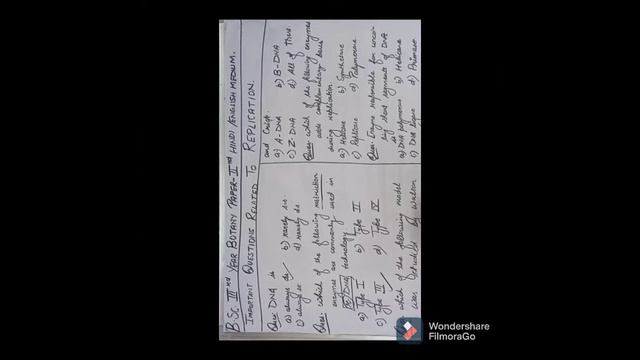 B.Sc IIIrd YEAR BOTANY PAPER-IInd HINDI/ENGLISH MEDIUM.
IMPORTANT QUESTIONS RELATED TO REPLICATION.
Ques: DNA is
a) always ds b) rarely ss
c) always ss d) rarely ds
Ques: which of the following restriction
enzyme are commonly used in
DNA technology
a) Type I b) Type II
c) Type III d) Type IV
which of the following model
was by Watson
and Crick.
a) A-DNA b) B-DNA
c) Z-DNA d) All of these
Ques: which of the following enzymes
adds complementary base
during replication
a) Helicase b) Synthetase
c) Replicase d) Polymerase
Ques: Enzyme responsible for
short segments of DNA
is
a) DNA polymerase b) Helicase
c) DNA ligase d) Primase
Wondershare
FilmoraGo